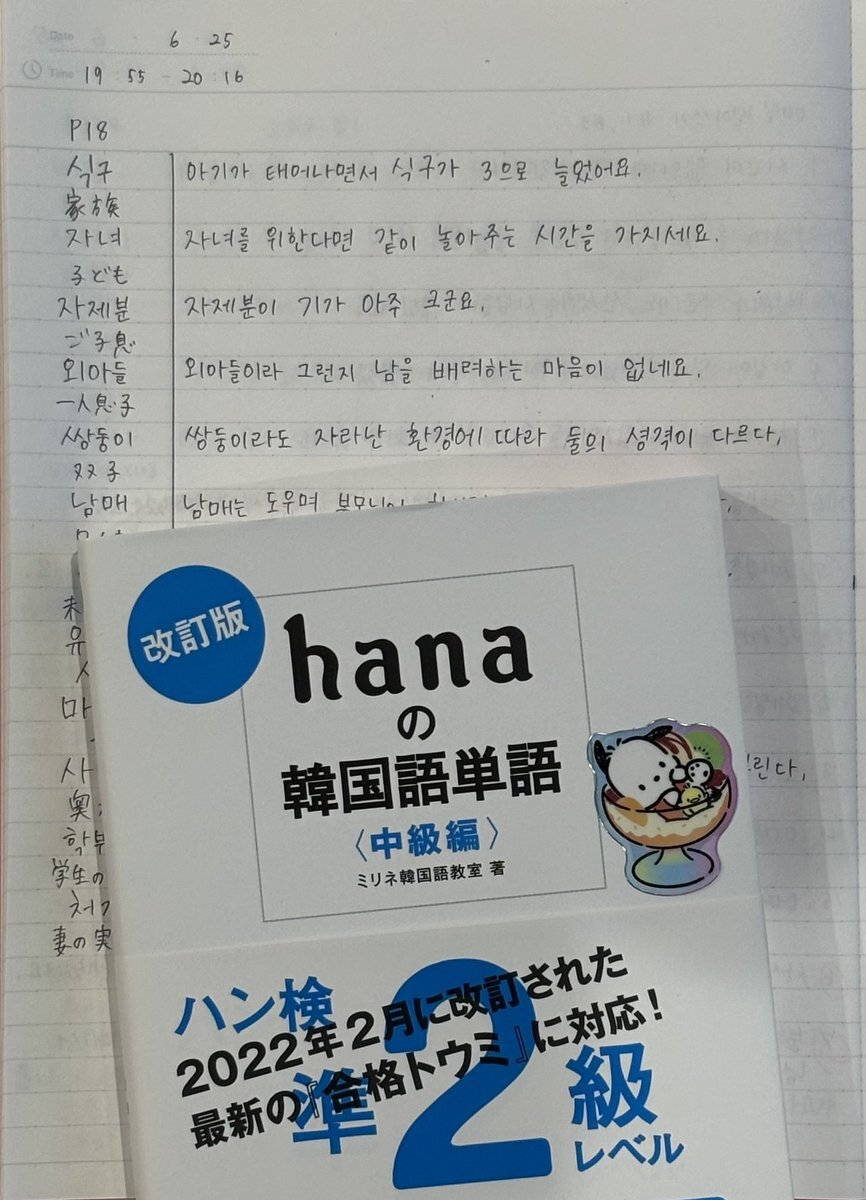 Date 6 · 25
Time 19 : 55 - 20 : 16
P18
식구 아기가 태어나면서 식구가 3으로 늘었어요.
家族
자녀 자녀를 위한다면 같이 놀아주는 시간을 가지세요.
子ども
자제분 자제분이 기가 아주 크군요.
ご子息
외아들 외아들이라 그런지 남을 배려하는 마음이 없네요.
一人息子
쌍둥이 쌍둥이라도 자라난 환경에 따라 둘의 성격이 다르다.
双子
남매 남매는 도우며 부모님이
未
유
마
사 린다.
奥
학부
学生の
처가
妻の実
改訂版
hana
の
韓国語単語
〈中級編〉
ミリネ韓国語教室 著
ハン検
2022年2月に改訂された
最新の『合格トウミ』に対応!
準2級
レベル